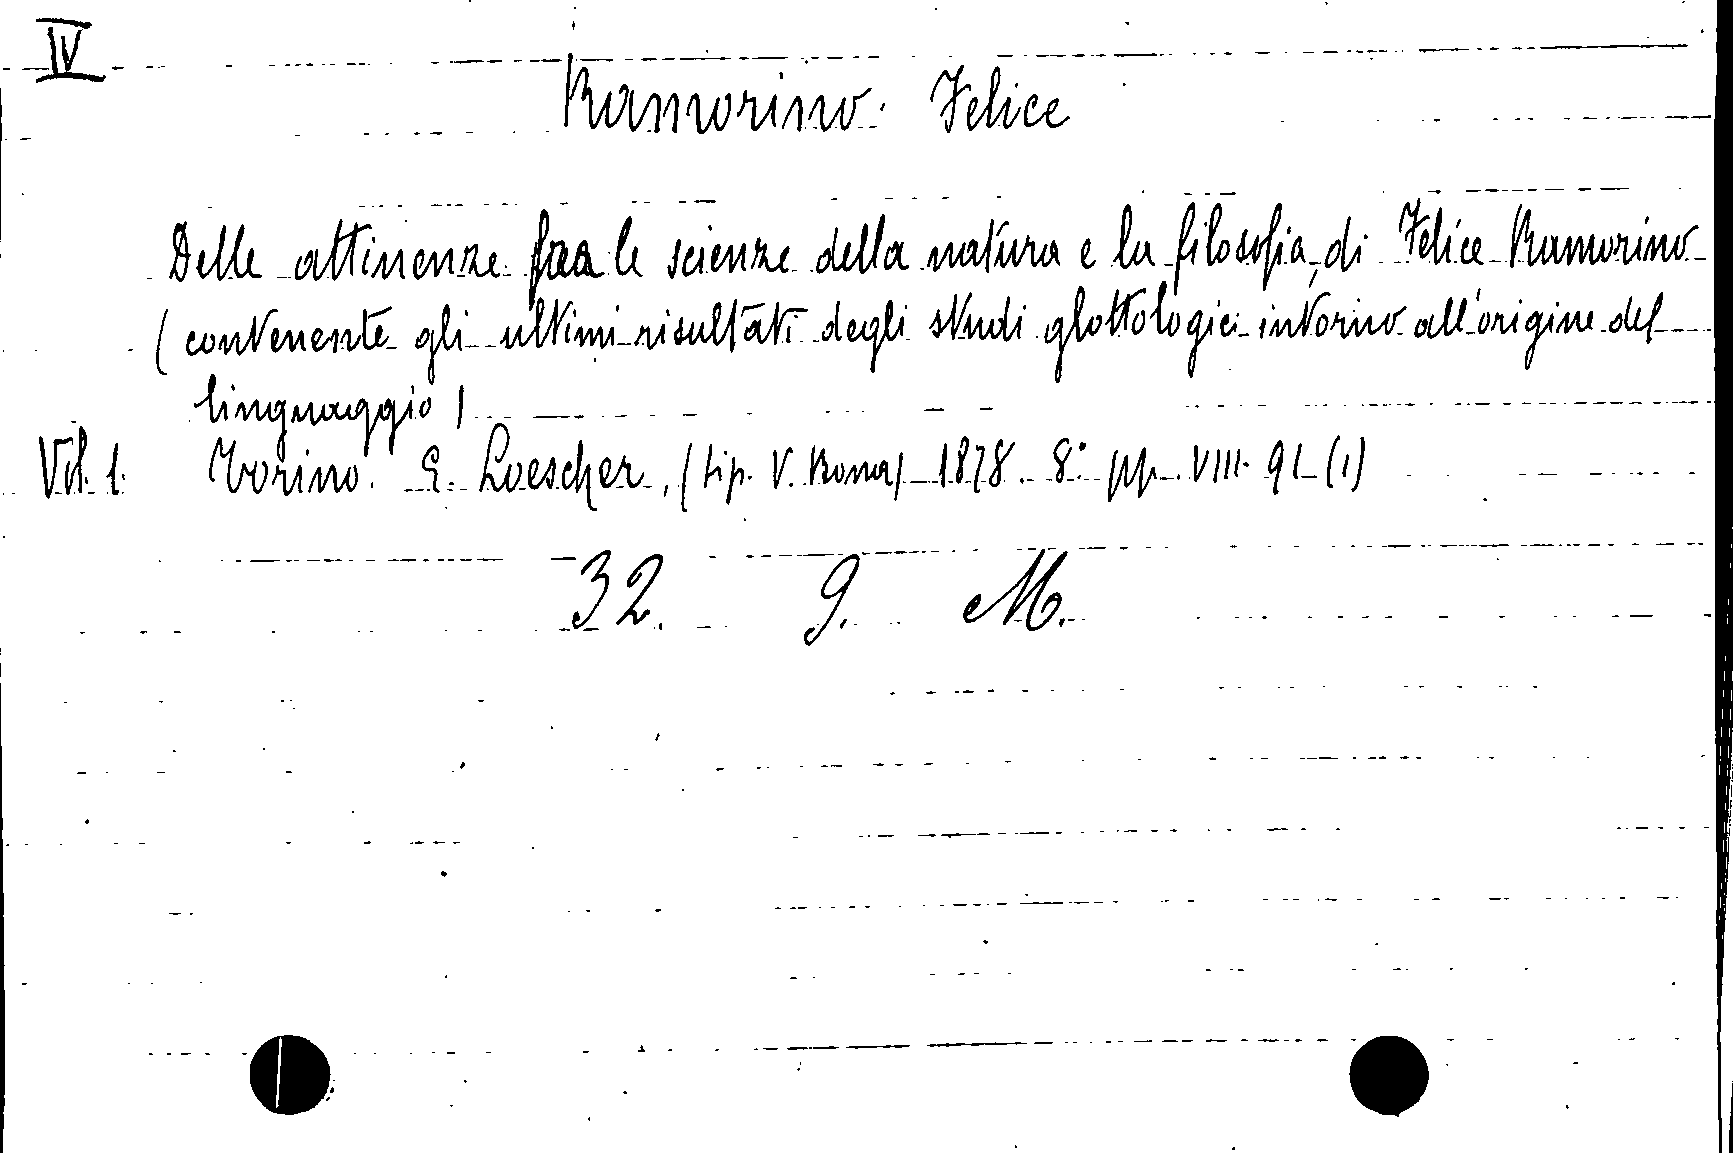 IV
Ramorino. Felice
Delle attinenze fra le scienze della natura e la filosofia, di Felice Ramorino
(contenente gli ultimi risultati degli studi glottologici intorno all'origine del
linguaggio)
Vol. 1. Torino. E. Loescher, (tip. V. Bona) 1878. 8° pp. VIII. 91 (1)
32. 9. M.